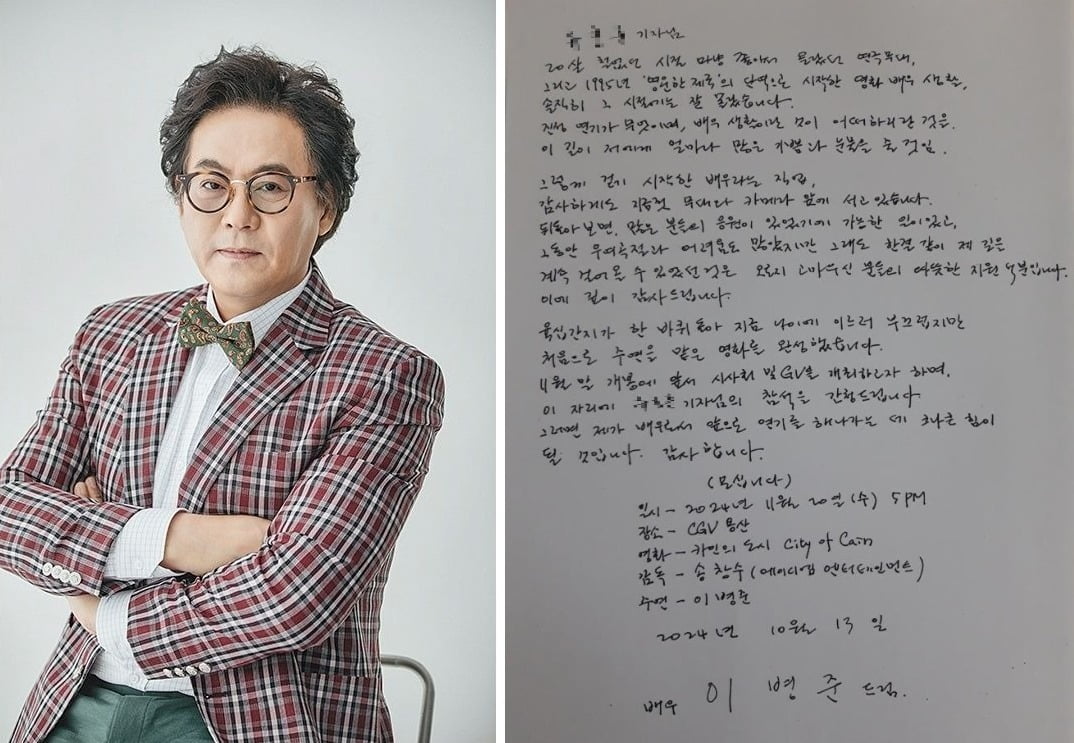 기자님
20살 철없던 시절 마냥 좋아서 올랐던 연극무대,
그리고 1995년 '영원한 제국'의 단역으로 시작한 영화 배우 생활,
솔직히 그 시절에는 잘 몰랐습니다.
진정 연기가 무엇이며, 배우 생활이란 것이 어떠하리란 것은.
이 길이 저에게 얼마나 많은 기쁨과 눈물을 줄 것인.
그렇게 걷기 시작한 배우라는 직업,
감사하게도 지금껏 무대와 카메라 앞에 서고 있습니다.
뒤돌아보면, 많은 분들의 응원이 있었기에 가능한 일이었고,
그동안 우여곡절과 어려움도 많았지만 그래도 한결 같이 제 길은
계속 걸어올 수 있었던 것은 오로지 고마우신 분들의 따뜻한 지원 덕분입니다.
이에 깊이 감사드립니다.
육십간지가 한 바퀴 돌아 지금 나이에 이르러 부끄럽지만
처음으로 주연을 맡은 영화를 완성했습니다.
11월 말 개봉에 앞서 시사회 및 GV를 개최하고자 하며,
이 자리에 기자님의 참석을 간청드립니다
그러면 제가 배우로서 앞으로 연기를 해나가는 데 크나큰 힘이
될 것입니다. 감사합니다.
(모십니다)
일시 - 2024년 11월 20일 (수) 5PM
장소 - CGV 용산
영화 - 카인의 도시 City of Cain
감독 - 송창수 (에이디업 엔터테인먼트)
주연 - 이병준
2024년 10월 13일
배우 이 병 준 드림.